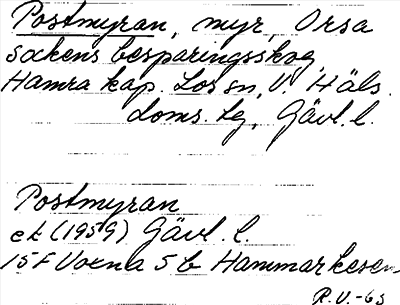 Postmyran, myr, Orsa
sockens besparingsskog,
Hamra kap. Los sn, V. Häls.
doms. lg, Gävl. l.
Postmyran
ek (1959) Gävl. l.
15F Voxna 5b Hammarkesen
R.V.-63